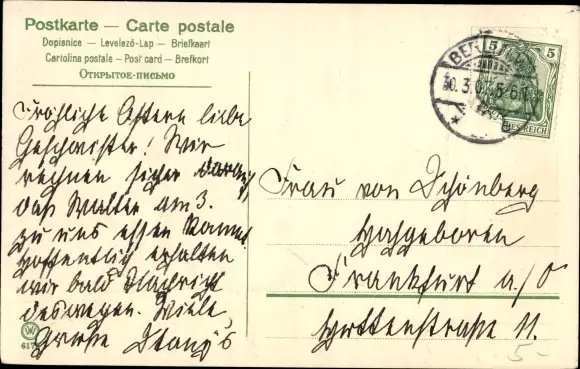 Postkarte — Carte postale
Dopisnice — Levelező-Lap — Briefkaart
Cartolina postale — Post card — Brefkort
Открытое-письмо
Fröhliche Ostern liebe
Geschwister! Wir
rechnen sicher darauf
daß Walter am 3.
zu uns essen kommt
hoffentlich erhalten
wir bald Nachricht
deswegen. Viele
Grüße
BERLIN
30.3.0 5-6
5 5
REICH
Frau von Schönberg
Hochgeboren
Frankfurt a/O
Huttenstraße 11.
5-
617